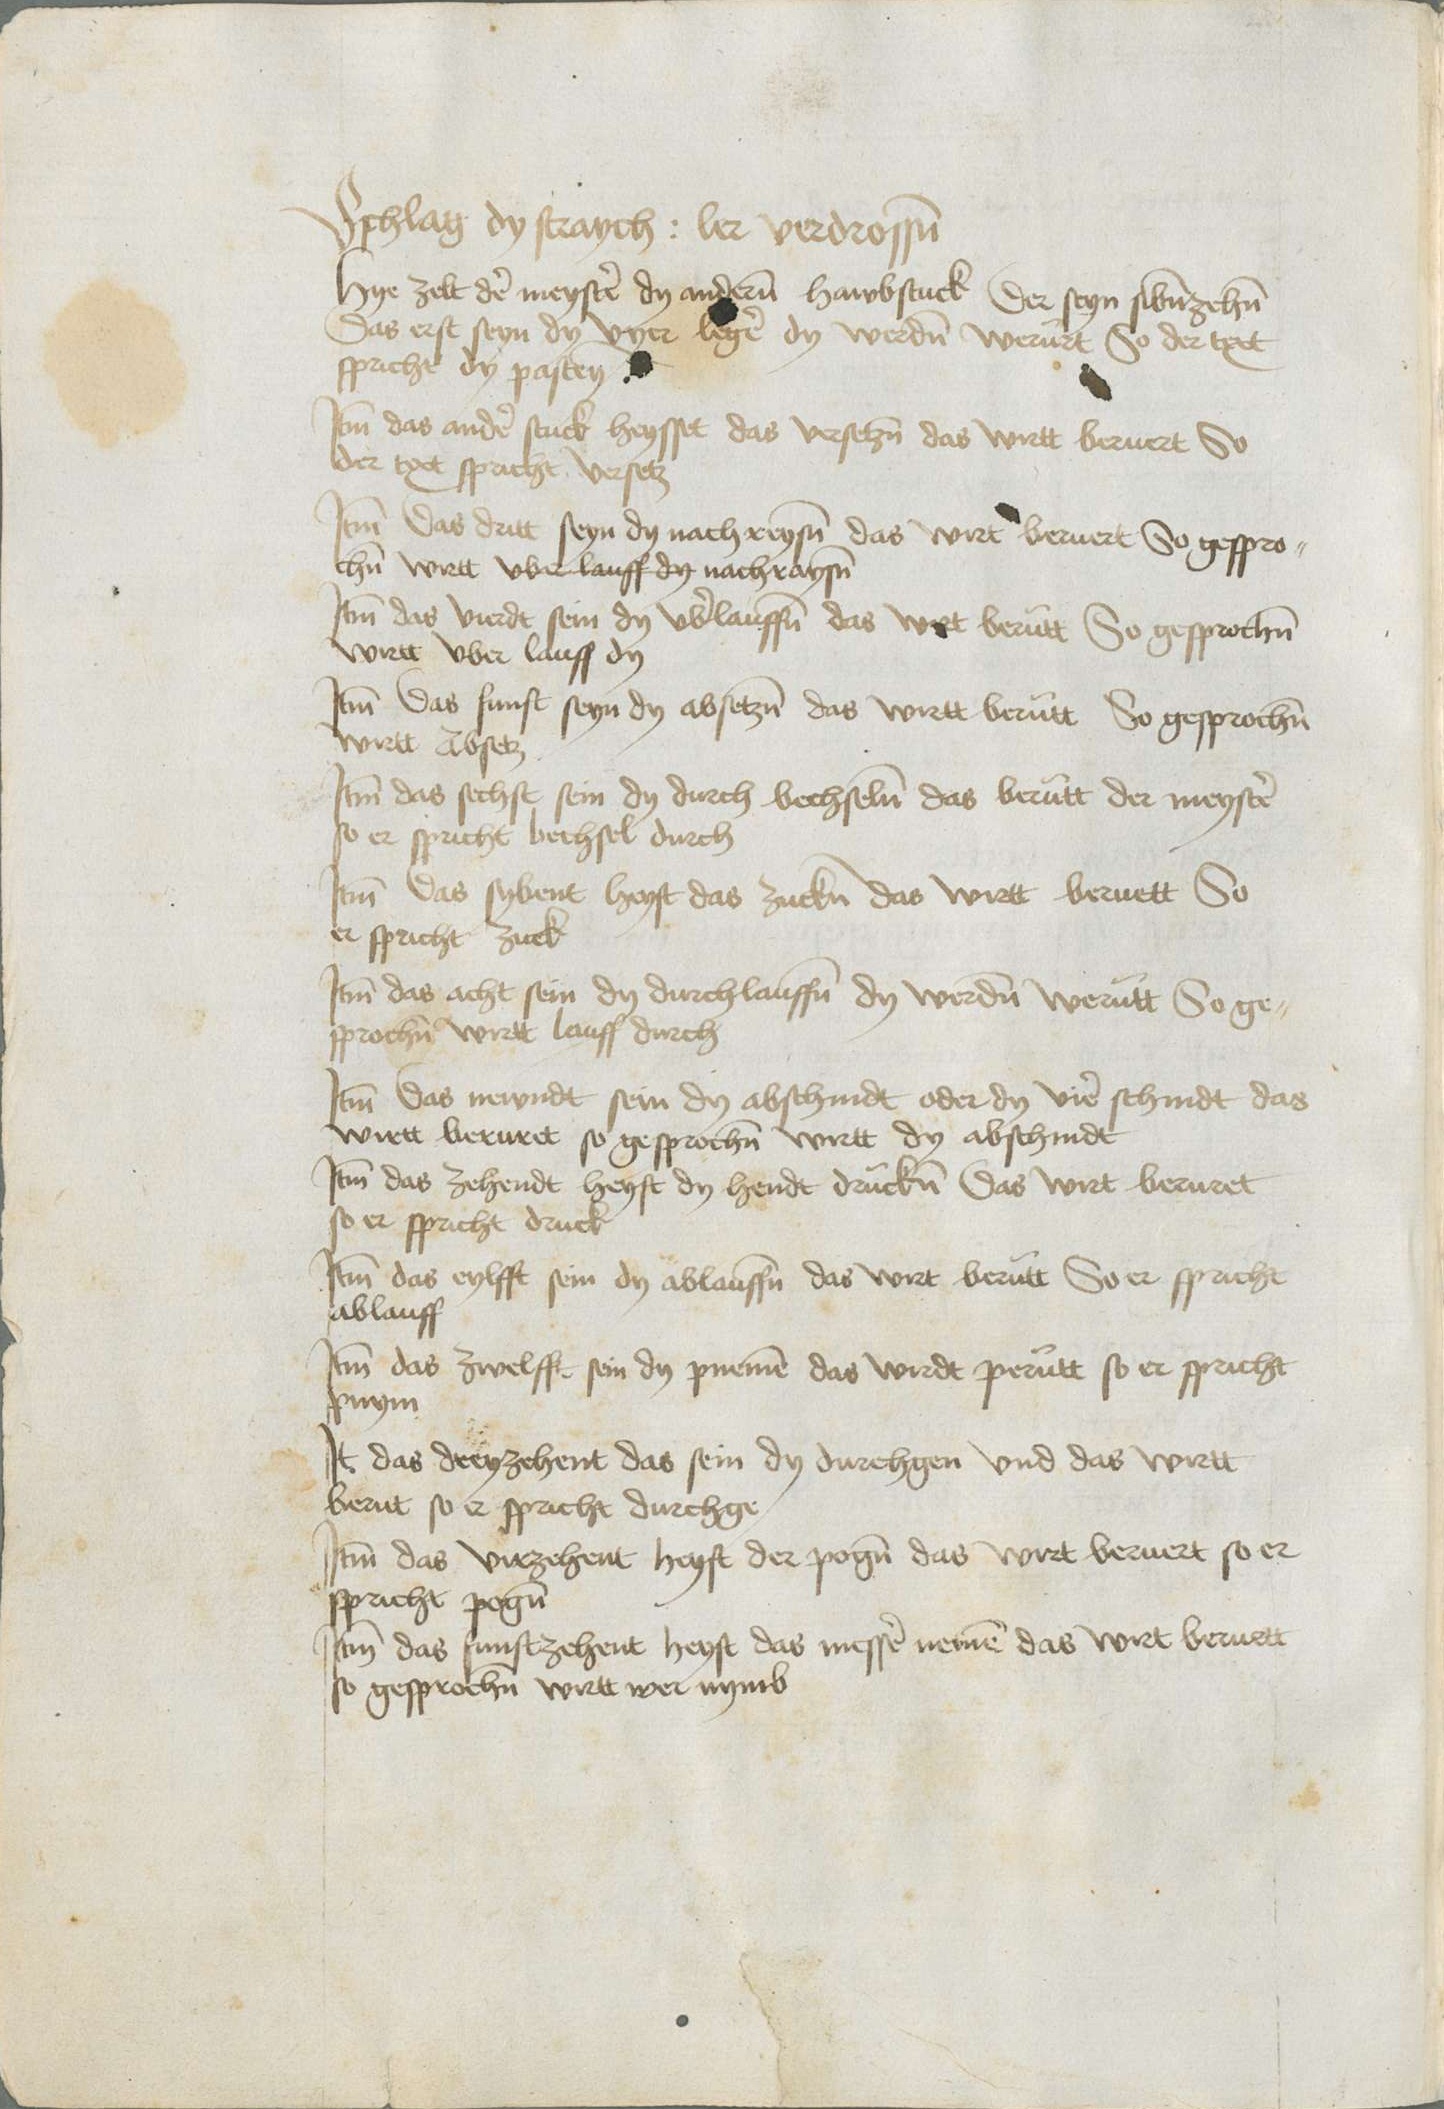 Schlag dy straych : ler verdrossn̄
Hye zelt dē meystē dy andern̄ hawbstuck Der seyn sibn̄zehn̄
Das erst seyn dy vyer legē dy werdn̄ werürt So der text
spricht dy pastey
Itm̄ das andē stuck heysset das versetzn̄ das wirtt beruert So
der text spricht versetz
Itm̄ Das dritt seyn dy nachreysn̄ das wirt beruert So gespro〃
chn̄ wirtt vber lauff dy nachraysn̄
Itm̄ das vierdt sein dy vbē̄lauffn̄ das wirt berütt So gesprochn̄
wirtt vber lauff dy
Itm̄ Das funft seyn dy absetzn̄ das wirtt berütt So gesprochn̄
wirtt Absetz
Itm̄ das sechst sein dy durch bechseln̄ das berütt der meystē
so er spricht bechsel durch
Itm̄ Das sybent heyst das zuckn̄ das wirtt beruett So
er spricht zuck
Itm̄ das acht sein dy durchlauffn̄ dy werdn̄ werütt So ge〃
sprochn̄ wirtt lauff durch
Itm̄ Das newndt sein dy abschnidt oder dy viē schnidt das
wirtt beruret so gesprochn̄ wirtt dy abschnidt
Itm̄ das zehendt heyst dy hendt drückn̄ Das wirt beruret
so er spricht druck
Itm̄ das eylfft sein dy ablauffn̄ das wirt berütt So er spricht
ablauff
Itm̄ das zwelfft sein dy pnemē das wirdt perütt so er spricht
pnym
It das dreyzehent das sein dy durchgen vnd das wirtt
berut so er spricht durchge
Itm̄ das virzehent heyst der pogn̄ das wirt beruert so er
spricht pogn̄
Itm̄ das funftzehent heyst das messē nemē das wirt beruett
so gesprochn̄ wirtt wer nymb